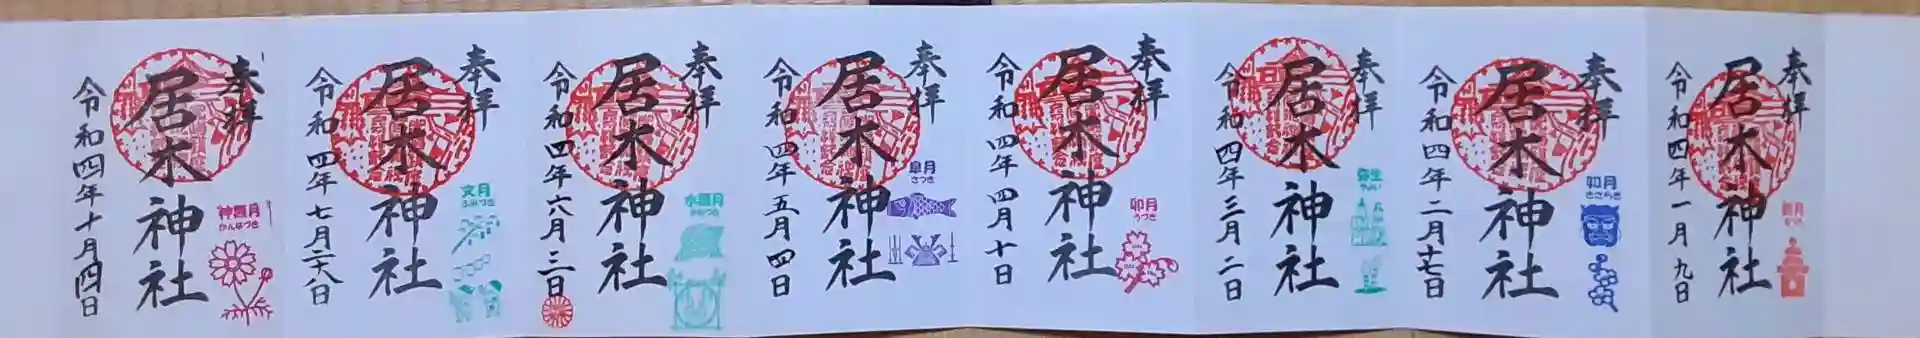 奉拝
居木神社
令和四年一月九日
睦月
むつき
奉拝
居木神社
令和四年二月十七日
如月
きさらぎ
奉拝
居木神社
令和四年三月二日
弥生
やよい
奉拝
居木神社
令和四年四月十日
卯月
うづき
奉拝
居木神社
令和四年五月四日
皐月
さつき
奉拝
居木神社
令和四年六月三日
水無月
みなづき
奉拝
居木神社
令和四年七月二八日
文月
ふみづき
奉拝
居木神社
令和四年十月四日
神無月
かんなづき